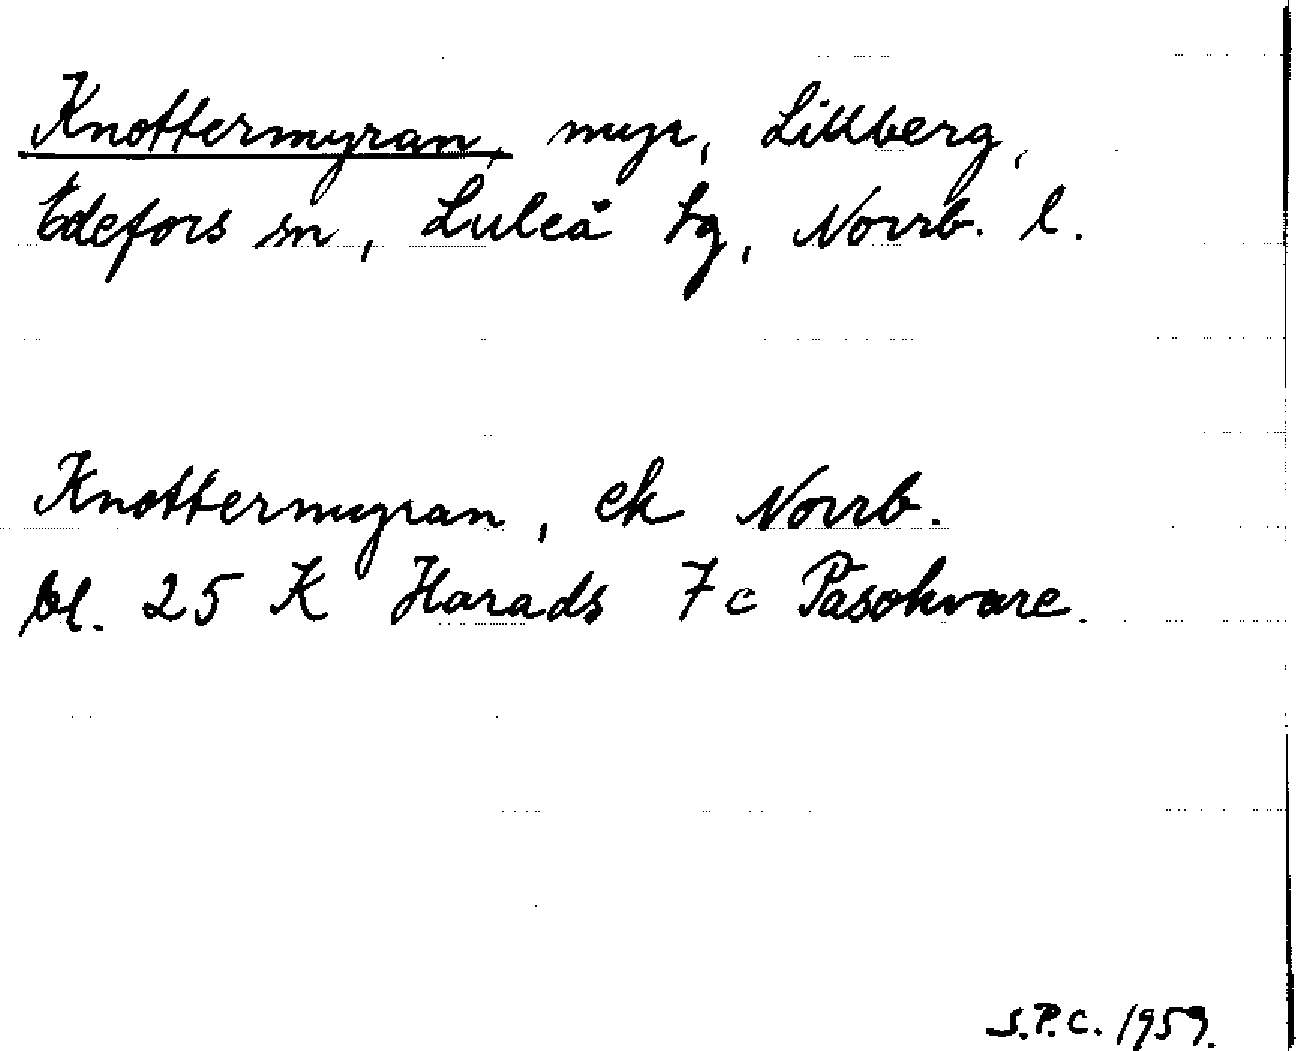 Knottermyran, myr, Lillberg,
Edefors sn, Luleå tg, Norrb. l.
Knottermyran, ek Norrb.
bl. 25 K Harads 7c Pasokvare.
S.P.C. 1959.